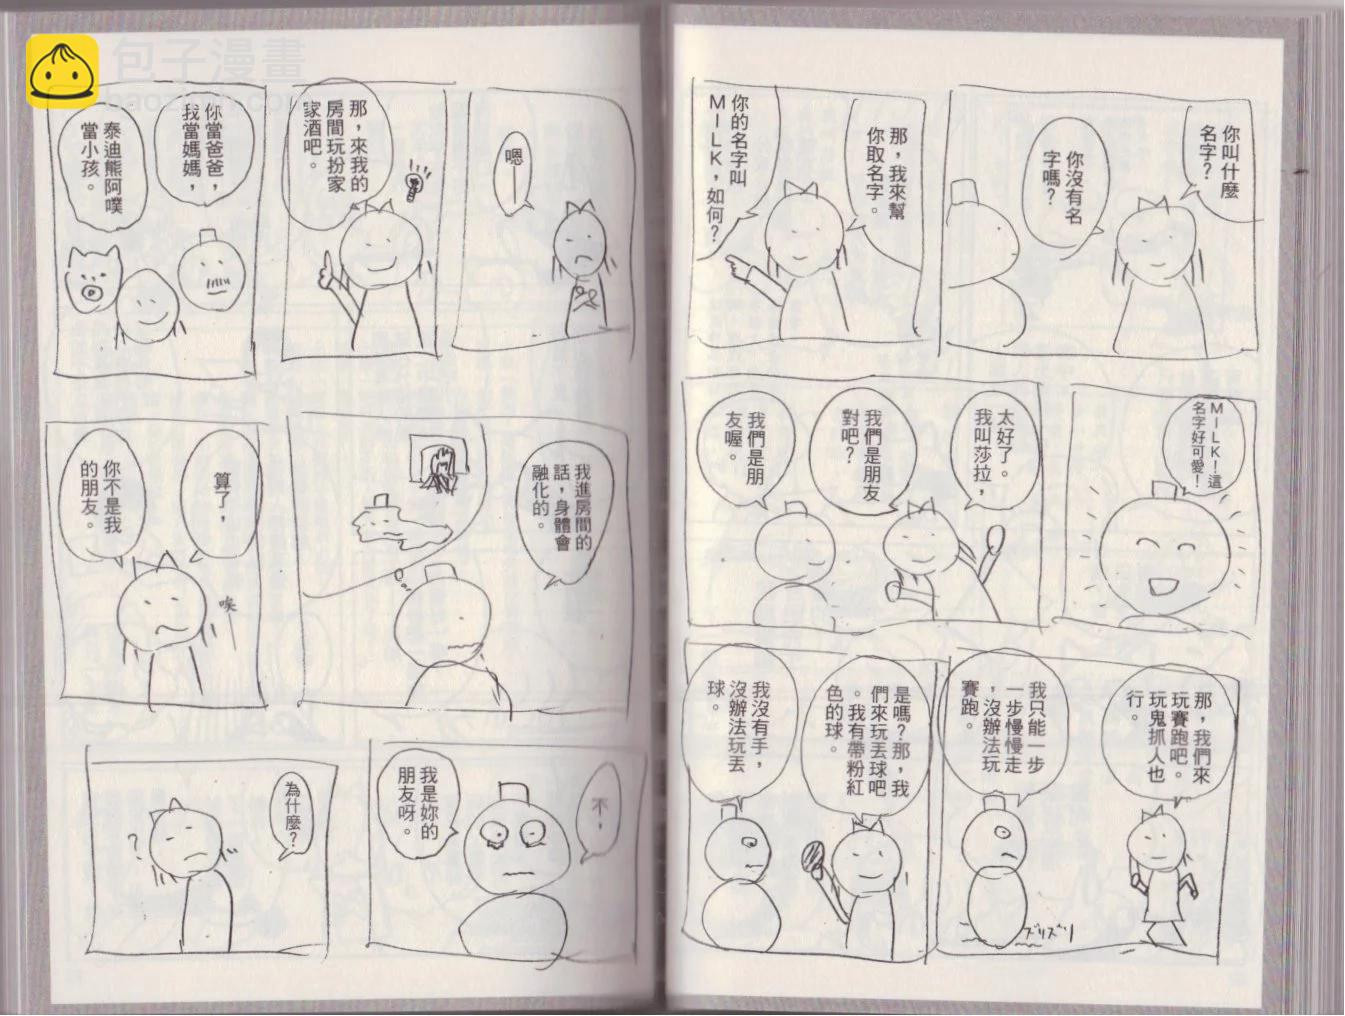 包子漫畫
baozimh.com
你叫什麼
名字？
你沒有名
字嗎？
那，我來幫
你取名字。
你的名字叫
MILK，如何？
MILK！這
名字好可愛！
太好了。
我叫莎拉，
我們是朋友
對吧？
我們是朋
友喔。
那，我們來
玩賽跑吧。
玩鬼抓人也
行。
我只能一步
一步慢慢走
，沒辦法玩
賽跑。
ズリズリ
是嗎？那，我
們來玩丟球吧
。我有帶粉紅
色的球。
我沒有手，
沒辦法玩丟
球。
嗯—
那，來我的
房間玩扮家
家酒吧。
你當爸爸，
我當媽媽，
泰迪熊阿噗
當小孩。
我進房間的
話，身體會
融化的。
算了，
你不是我
的朋友。
唉—
不，
我是妳的
朋友呀。
為什麼？
?